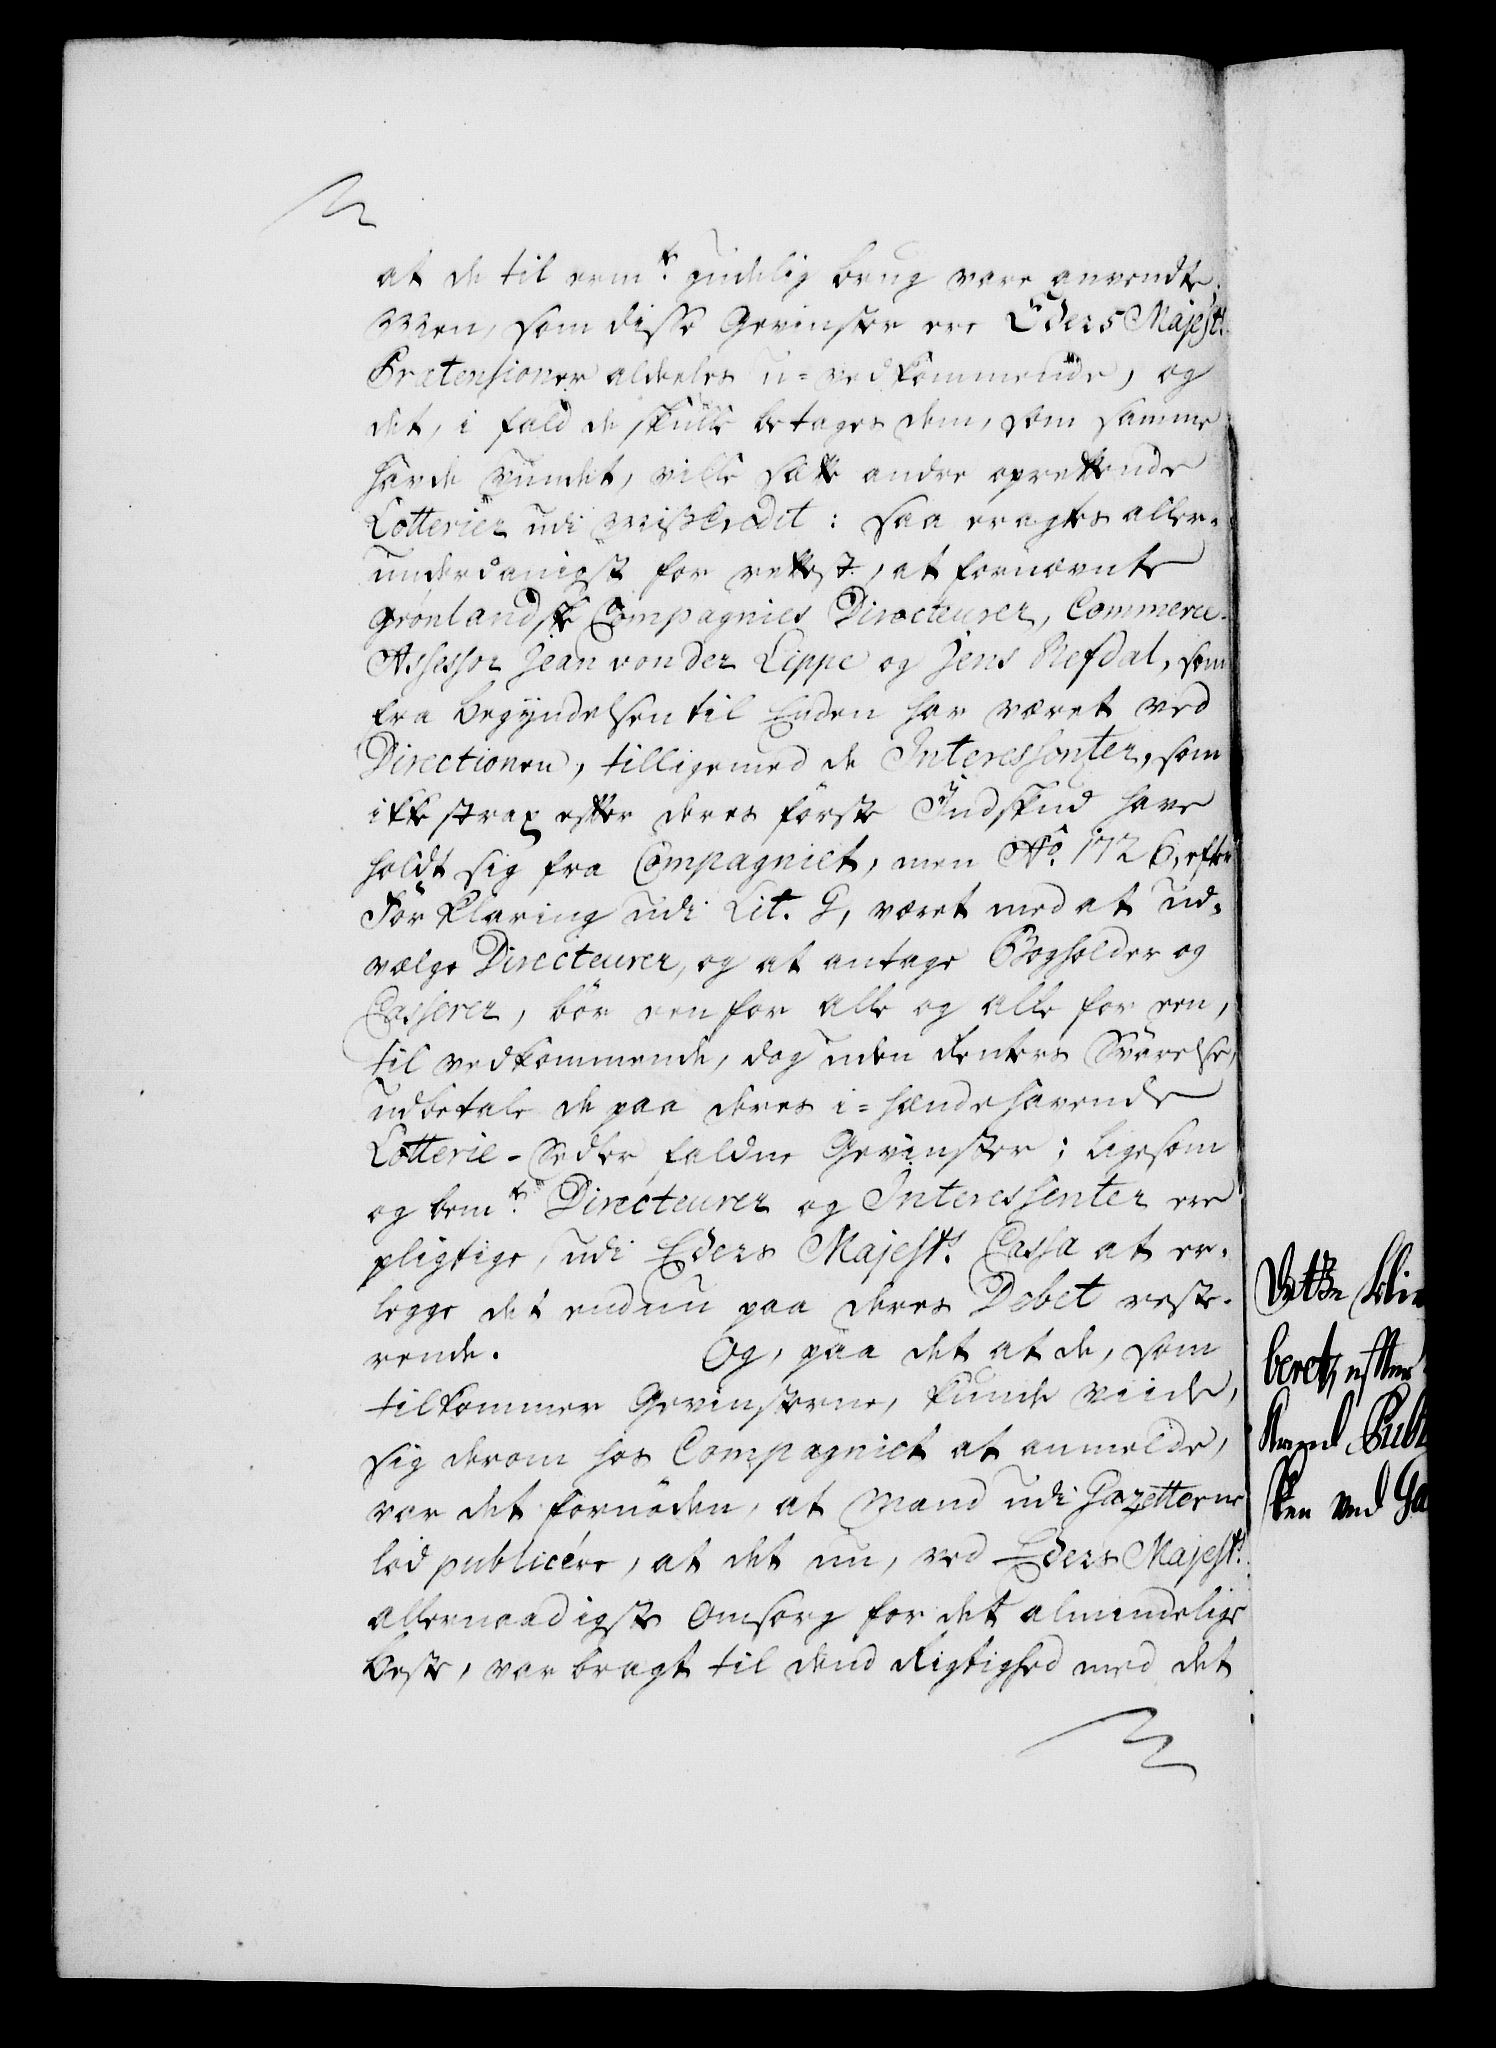 at de til erm.te gudelig brug vare anvendte.
Men, som disse Gevinster ere Eders Majest.s
Prætensioner aldeeles u-vedkommende, og
det, i fald de skulle betages dem, som samme
havde vundet, ville sætte andre oprettende
Lotterier udi Miscredit: saa eragtes aller-
underdanigst for rettest, at fornævnte
Grønlandske Compagnies Directeurer, Commerce-
Assessor Jean von der Lippe og Jens Refdal, som
fra Begyndelsen til Enden har været ved
Directionen, tilligemed de Interessenter, som
ikke strax efter deres første Indskud have
holdt sig fra Compagniet, men Aº. 1726, efter
Forklaring udi Lit. G, været med at ud-
vælge Directeurer, og at antage Bogholder og
Casserer, bør een for alle og alle for een,
til vedkommende, dog uden Renters Svarelse,
udbetale de paa deres i-hændehavende
Lotterie-Sedler faldne Gevinster; ligesom
og bem.te Directeurer og Interessenter ere
pligtige, udi Eders Majest.s Cassa at er-
legge det endnu paa deres Debet reste-
rende. Og, paa det at de, som
tilkommer Gevinsterne, kunde viide,
sig derom hos Compagniet at anmelde,
var det fornøden, at Mand udi Gazetterne
lod publicére, at det nu, ved Eders Majest.s
allernaadigste Omsorg for det almindelige
Beste, var bragt til dend Rigtighed med det